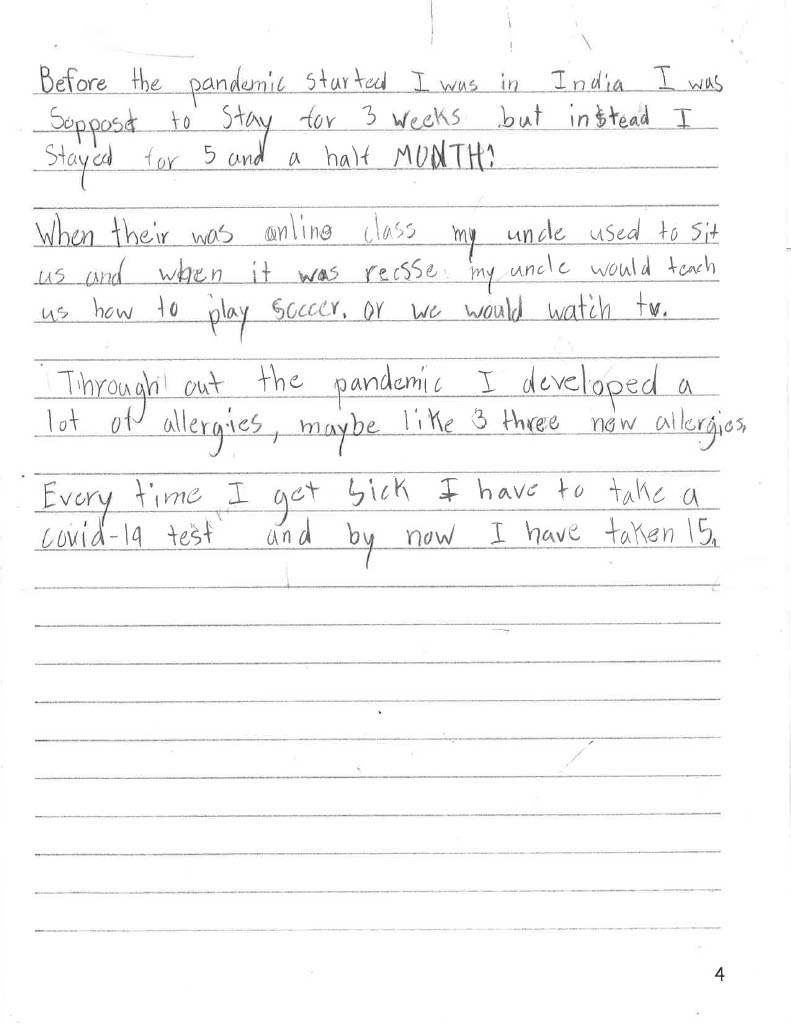 Before the pandemic started I was in India I was
Soppost to stay for 3 weeks but instead I
stayed for 5 and a half MONTH!
When their was online class my uncle used to sit
us and when it was recsse my uncle would teach
us how to play soccer. or we would watch tv.
Through out the pandemic I developed a
lot of allergies, maybe like 3 three new allergies,
Every time I get sick I have to take a
covid-19 test and by now I have taken 15.
4